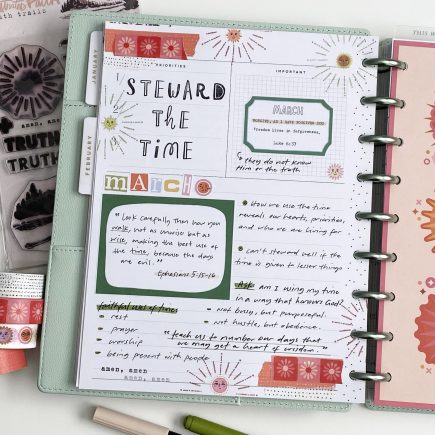 JANUARY
FEBRUARY
PRIORITIES
STEWARD
THE
TIME
IMPORTANT
MARCH
Luke 6:37
they do not know
Him or the truth
MARCH
"Look carefully then how you
walk, not as unwise but as
wise, making the best use of
the time, because the days
are evil."
Ephesians 5:15-16
How we use the time
reveals our hearts, priorities,
and who we are living for
Can't steward well if the
time is given to lesser things
Ask: am I using my time
in a way that honors God?
not busy, but purposeful.
not hustle, but obedience.
faithful use of time:
rest
prayer
worship
being present with people
"teach us to number our days that
we may get a heart of wisdom."
amen, amen
amen, amen
amen, amen
TRUTH
TRUTH
THIS